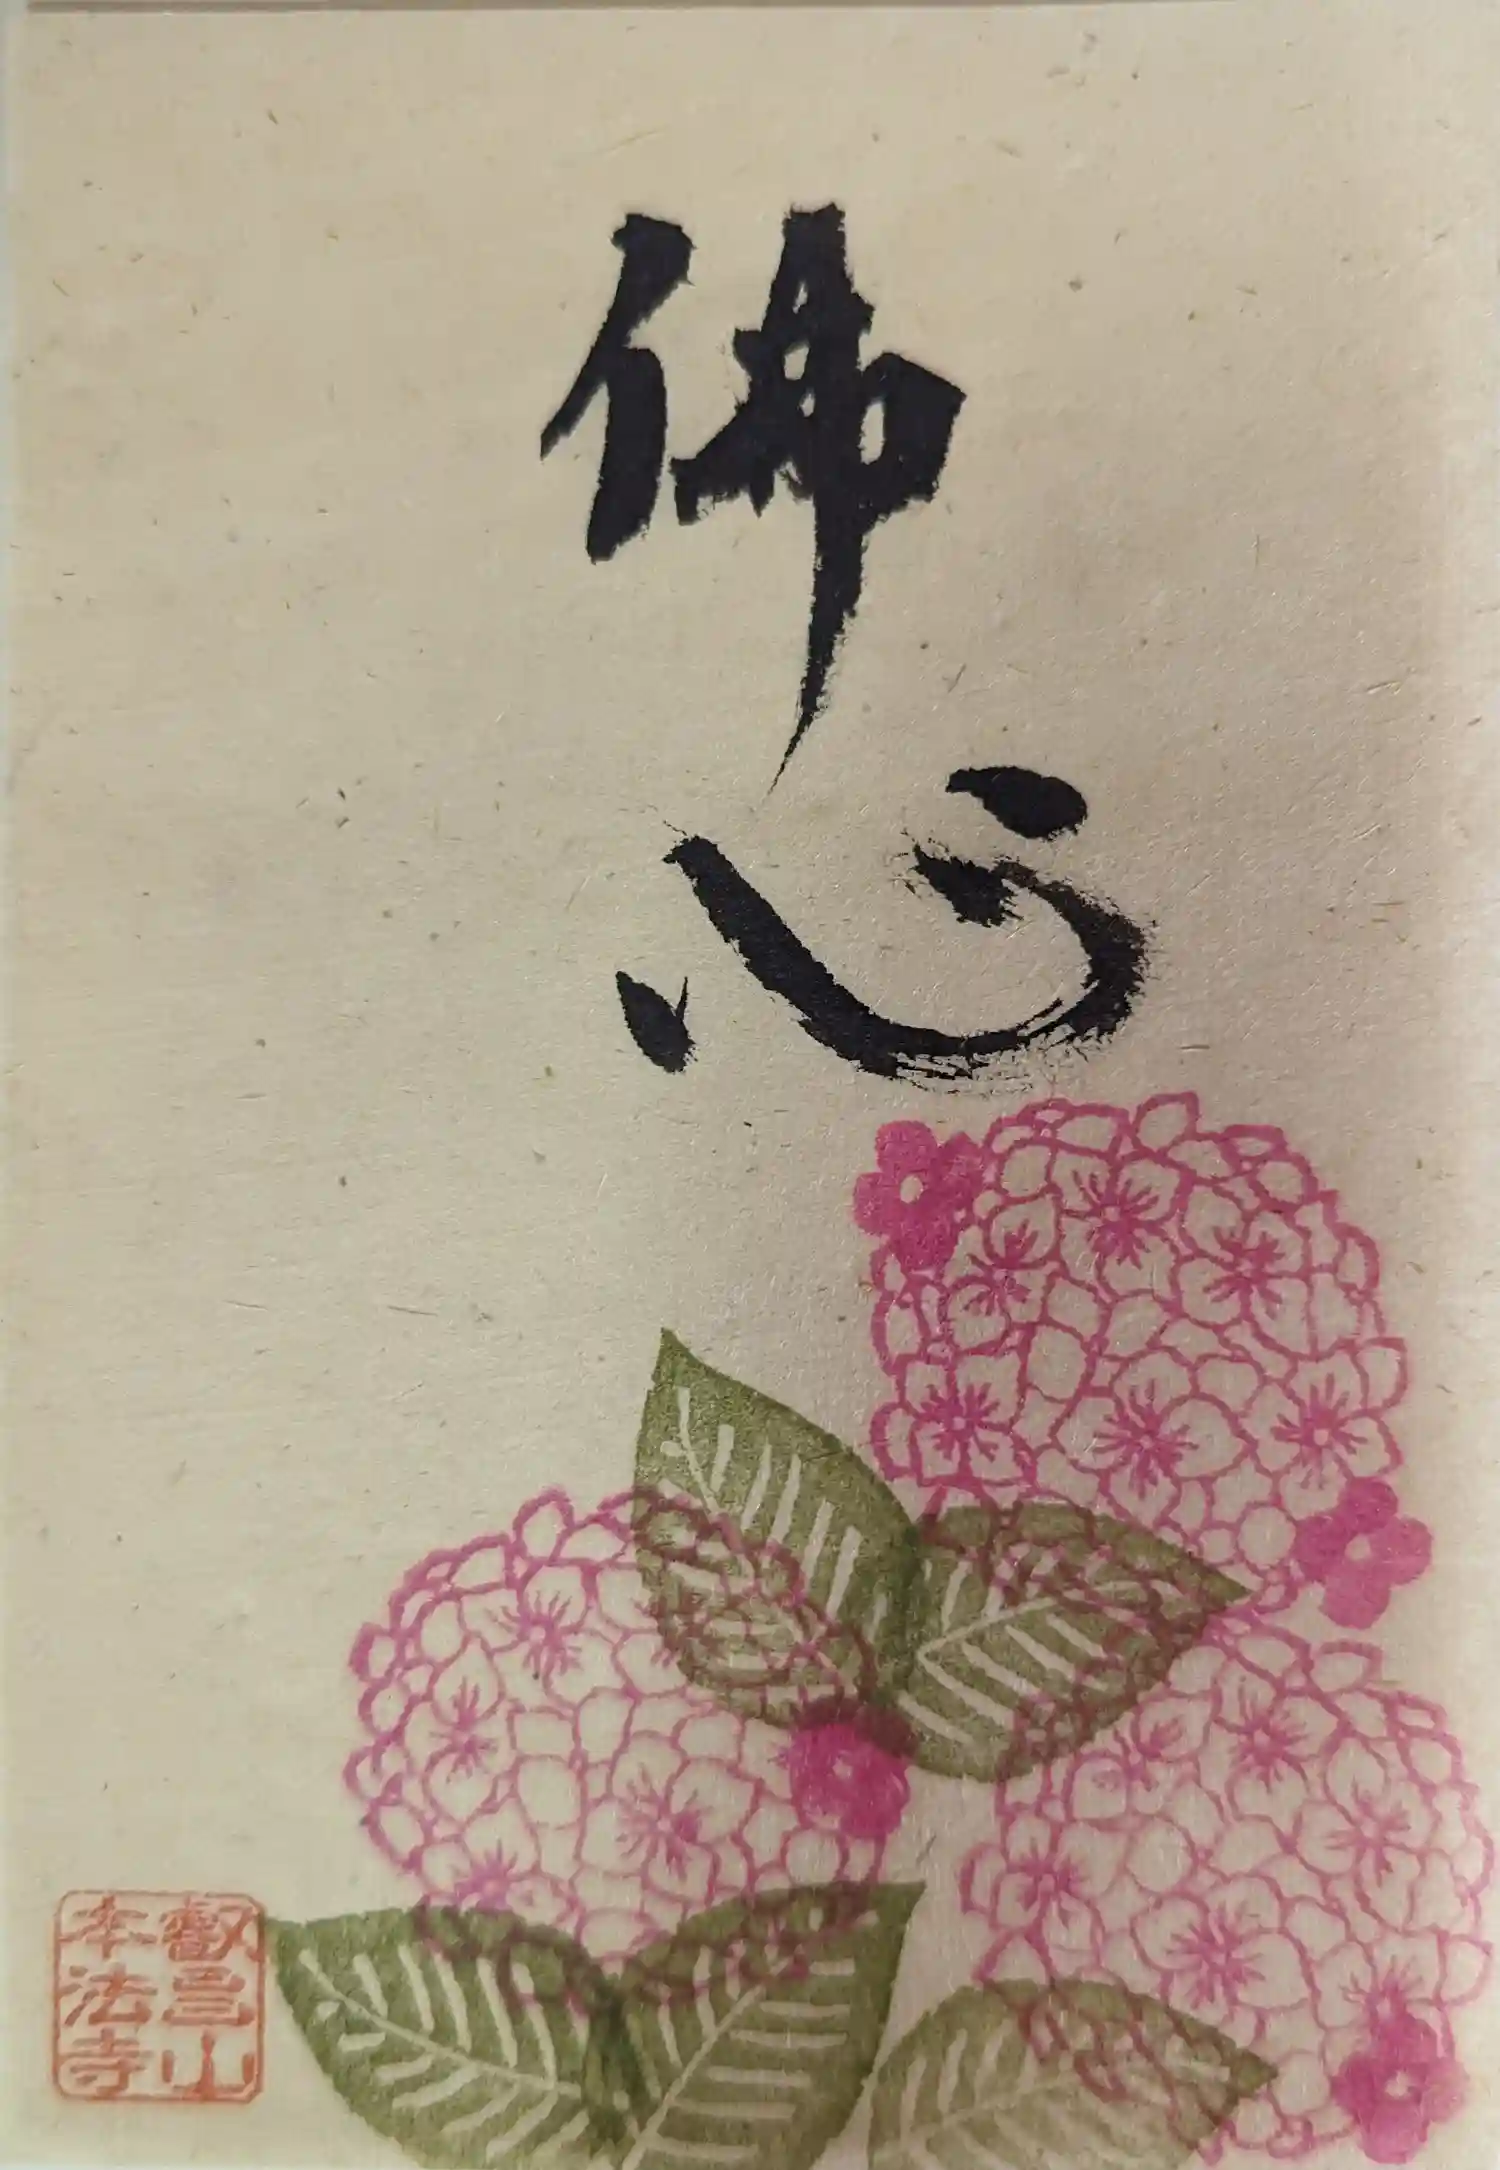 佛心
叡昌山
本法寺